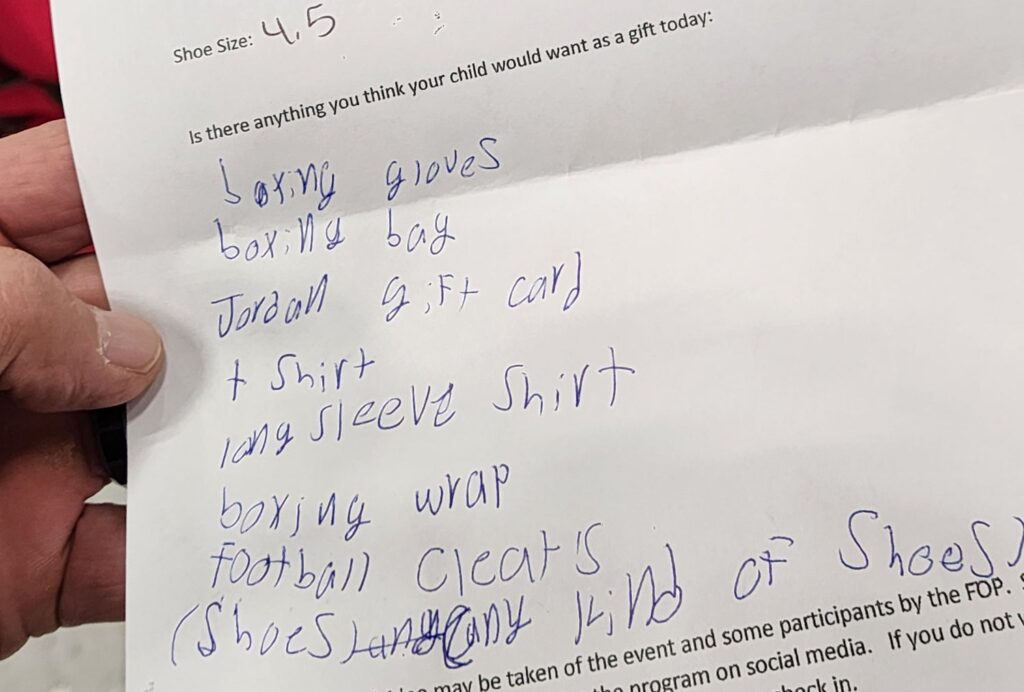 Shoe Size: 4.5
Is there anything you think your child would want as a gift today:
boxing gloves
boxing bag
Jordan gift card
t shirt
long sleeve shirt
boxing wrap
football cleats
(shoes) (any kind of shoes)
may be taken of the event and some participants by the FOP.
program on social media. If you do not
check in.